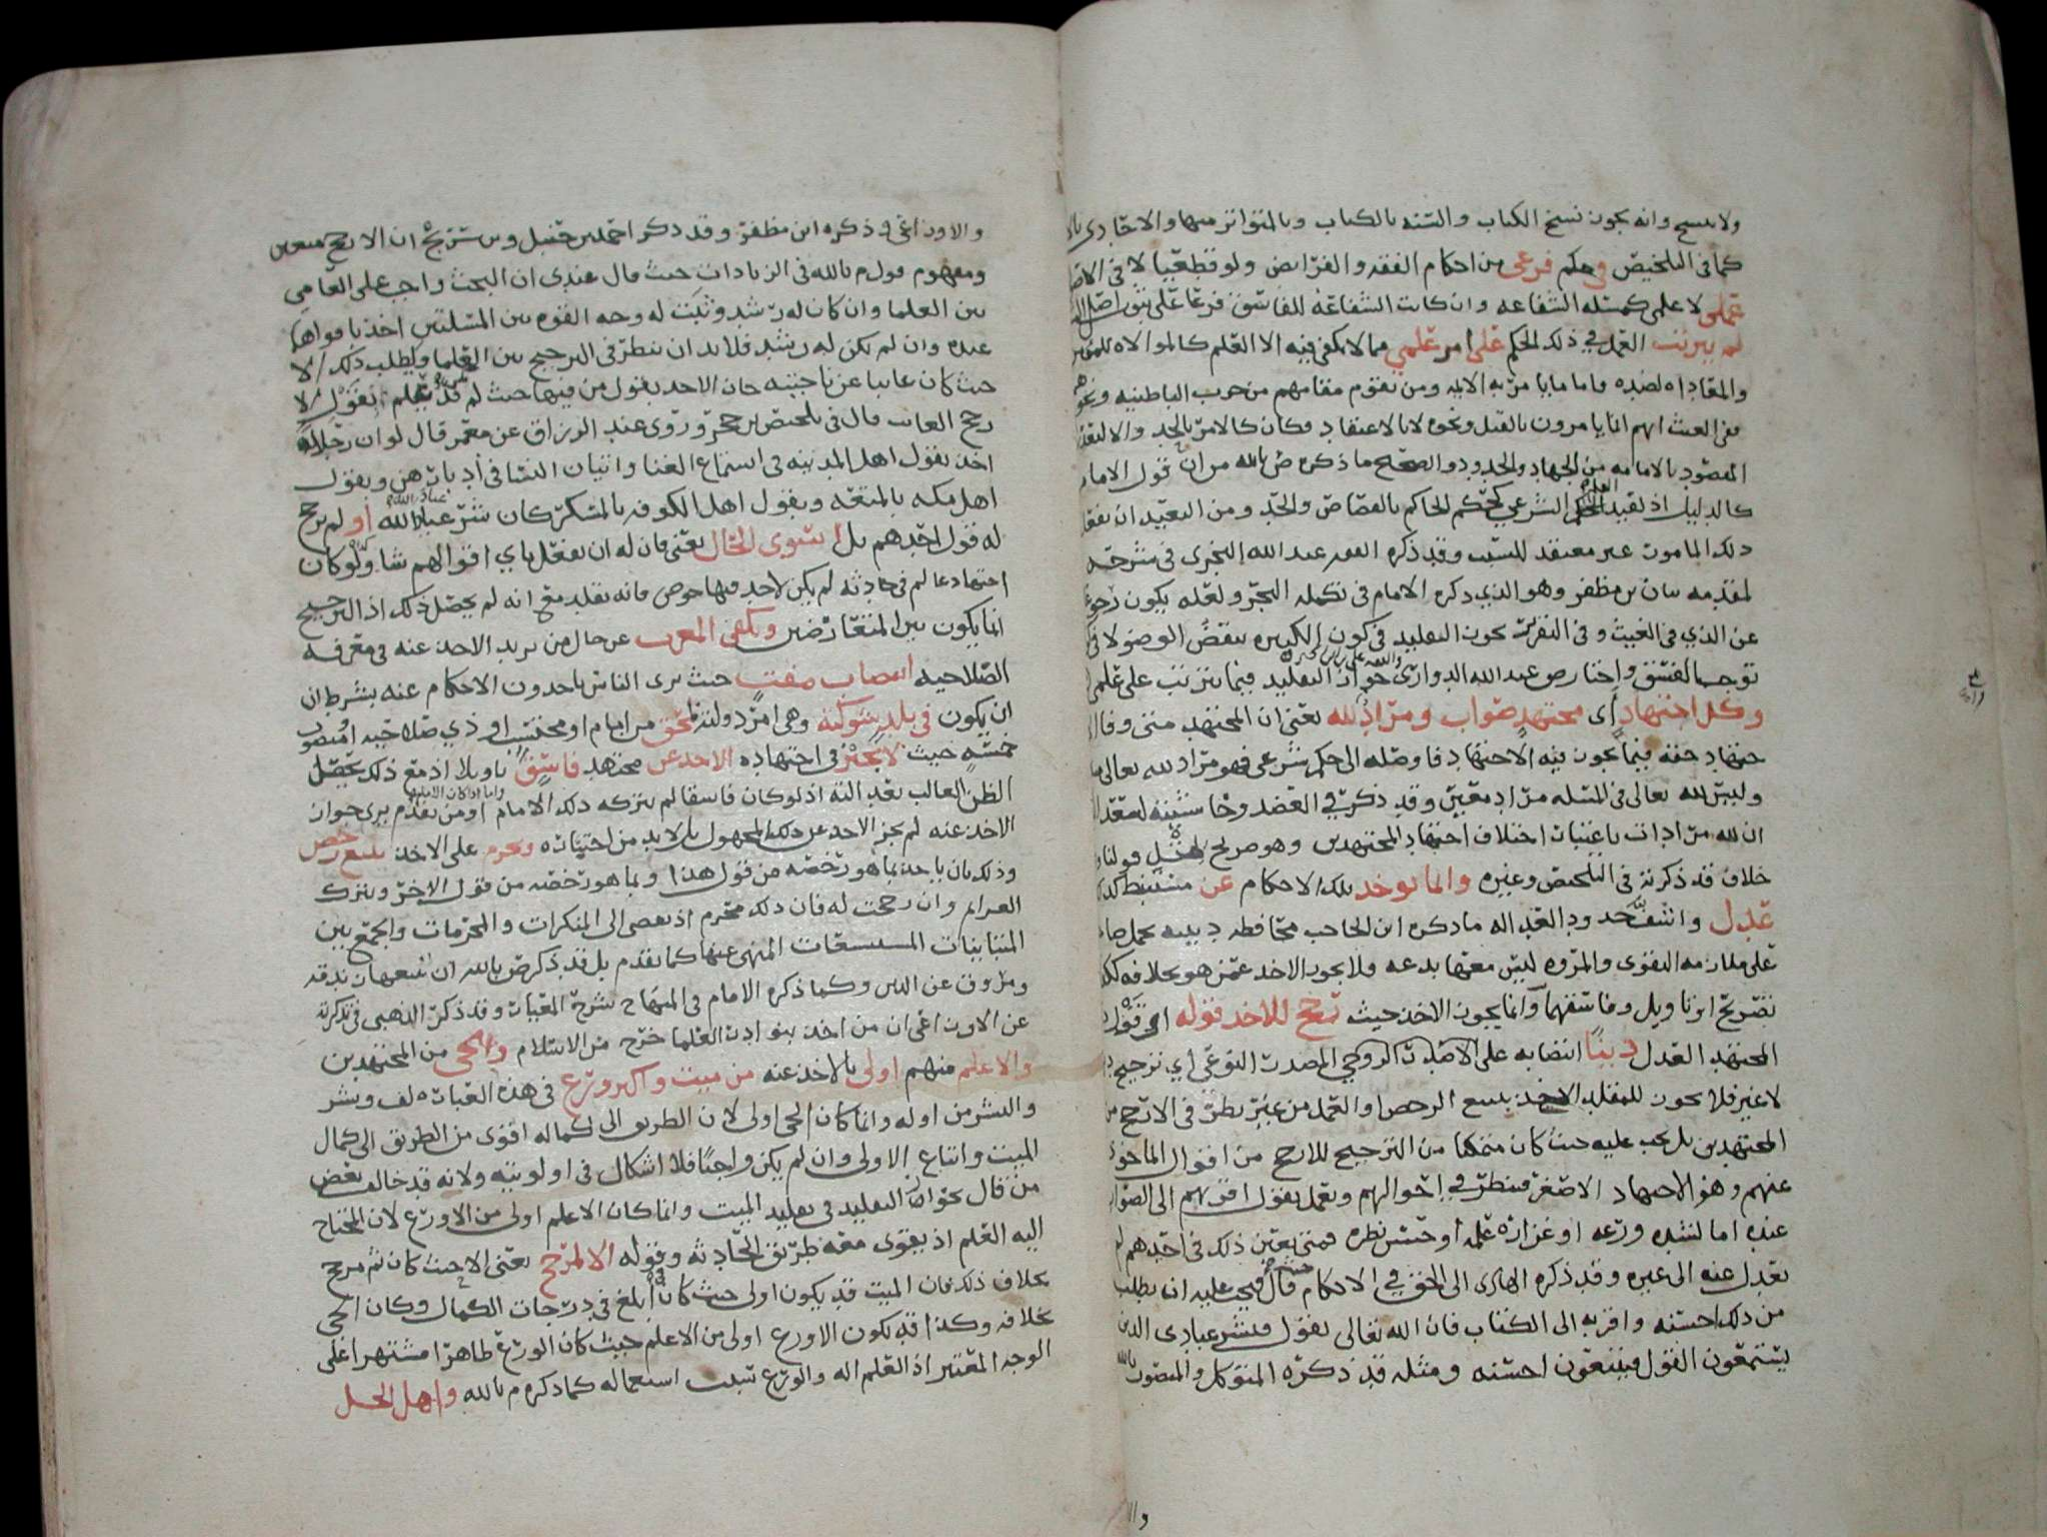 ولا ينسخ وانه يجوز نسخ الكتاب والسنه بالكتاب وبالمتواتر منها والاحادي بالا
كما في التلخيص في حكم فرعي من احكام الفقه والفرائض ولو قطعيا لا في الاصـ
عملي لا علمي كمسئله الشفاعه وان كانت الشفاعة للفاسق فرعا على
لم يترتب العمل في ذلك الحكم على امر علمي مما لا يكفي فيه الا العلم كالموالاه للمؤمن
والمعاداه لضده واما ما يامر به الائمه ومن يقوم مقامهم من حرب الباطنيه ونحوهم
ففي الغيث انهم انما يامرون بالقتل ونحوه لا بالاعتقاد فكان كالامر بالحد والا لتعذر
المقصود بالامامه من الجهاد والحدود والصحيح ما ذكره ض بالله من ان قول الامام
كالدليل اذ يفيد العلم الشرعي كحكم الحاكم بالقصاص والحد ومن البعيد ان يفعل
ذلك المامور غير معتقد للسبب وقد ذكره الفقيه عبد الله النجري في شرحه
لمقدمه بيان بن مظفر وهو الذي ذكره الامام في تكمله البحر ولعله يكون رجوع
عن الذي في الغيث وفي التقرير يجوز التقليد في كون الكبيره ينقض الوضو لا في كو
توجب الفسق واختار ص عبد الله الدواري جواز التقليد فيما يترتب على علمي
وكل اجتهاد اي مجتهد صواب ومراد لله يعني ان المجتهد متى وفا الا
جتهاد حقه فيما يجوز فيه الاجتهاد فاوصله الى حكم شرعي فهو مراد لله تعالى
وليس لله تعالى في المسئله مراد معين وقد ذكر في العضد وحاشيته
ان لله مرادات باعتبار اختلاف اجتهاد المجتهدين وهو صريح قولنا
خلاف قد ذكرته في التلخيص وغيره وانما يوخذ تلك الاحكام عن مستنبط
عدل واشف حدود العداله ما ذكره ابن الحاجب محافظه دينيه تحمل صا
على ملازمه التقوى والمروه ليس معها بدعه ولا يجوز الاخذ عمن هو بخلافه
تصريح او تاويل وفاسقهما وانما يجوز الاخذ حيث ترجح للاخذ قوله اي قول
المجتهد العدل دينا انتصابه على المصدر النوعي اي ترجيح
لا غير فلا يجوز للمقلد الاخذ بتتبع الرخص او العمد من غير نظر في الارجح من
المجتهدين بل يجب عليه حيث كان متمكنا من الترجيح للارجح من اقوال الماخوذ
عنهم وهو الاجتهاد الاصغر فينظر في احوالهم ويعمل بقول اقربهم الى الصواب
عنده اما لشده ورعه او غزاره علمه او حسن نظره فمتى تعين ذلك في احدهم لم
يعدل عنه الى غيره وقد ذكره الهادي الى الحق في الاحكام حيث قال فيجب عليه ان يطلب
من ذلك احسنه واقربه الى الكتاب فان الله تعالى يقول فبشر عبادي الذين
يستمعون القول فيتبعون احسنه ومثله قد ذكره المتوكل والمنصور بالله
وا
والاوزاعي ذكره ابن مظفر وقد ذكر احمد بن حنبل وبن سريج ان الارجح متعين
ومفهوم قول م بالله في الزيادات حيث قال عندي ان البحث واجب على العامي
بين العلما وان كان له رشد وثبت له وجه القوه بين المسئلتين اخذ باقواها
عنده وان لم يكن له رشد فلا بد ان ينظر في الترجيح بين العلما ويطلب ذلك الا
حيث كان غايبا عن ناحيته جاز الاخذ بقول من فيها حيث لم يعلم بقول
رجح الغايب قال في تلخيص بن حجر وروى عبد الرزاق عن معمر قال لو ان رجلا
اخذ بقول اهل المدينه في استماع الغنا واتيان النسا في ادبارهن وبقول
اهل مكه بالمتعه وبقول اهل الكوفه بالمسكر كان شر عباد الله او لم يرجح
له قول احدهم بل استوى الحال يعني فان له ان يفعل باي اقوالهم شا ولو كان
اجتهاد عالم في حادثه لم يكن لاحد فيها خوض فانه يقلد مع انه لم يحصل ذلك اذ الترجيح
انما يكون بين المتعارضين ويكفي المغرب عن حال من يريد الاخذ عنه في معرفه
الصلاحيه انتصاب مفت حيث يرى الناس ياخذون الاحكام عنه بشرط ان
ان يكون في بلد شوكته وهي امر دولته لمحق من امام او محتسب او ذي صلاحيه منصوب
خمسه حيث لا يجيز في اجتهاده الاخذ عن مجتهد فاسق تاويلا اذ مع ذلك يحصل
الظن الغالب بعدالته اذ لو كان فاسقا لم يتركه ذلك الامام واما اذا كان الامام او من تقدم يرى جواز
الاخذ عنه لم يجز الاخذ عن ذلك المجهول بل لا بد من اختباره ويحرم على الاخذ تتبع رخص
وذلك بان ياخذ بما هو رخصه من قول هذا وبما هو رخصه من قول الاخر ويترك
العزايم وان رجحت له فان ذلك محرم اذ يفضي الى المنكرات والمحرمات والجمع بين
المتباينات المستبشعات المنهي عنها كما تقدم بل قد ذكر ض بالله ان تتبعها زندقه
ومروق عن الدين وكما ذكره الامام في المنهاج بشرح المعيار وقد ذكر الذهبي في تذكرته
عن الاوزاعي ان من اخذ بنوادر العلما خرج من الاسلام والحي من المجتهدين
والاعلم منهم اولى بالاخذ عنه من ميت واكبر ورع في هذه العباره لف ونشر
والنشر من اوله وانما كان الحي اولى لان الطريق الى كماله اقوى من الطريق الى كمال
الميت واتباع الاولى وان لم يكن واجبا فلا اشكال في اولويته ولانه قد خالف بعض
من قال بجواز التقليد في تقليد الميت وانما كان الاعلم اولى من الاورع لان المحتاج
اليه العلم اذ يقوى معه طريق الحادثه وقوله الا لمرجح يعني الا حيث كان ثم مرجح
بخلاف ذلك فان الميت قد يكون اولى حيث كان ابلغ في درجات الكمال وكان الحي
بخلافه وكذا قد يكون الاورع اولى من الاعلم حيث كان الورع ظاهرا مشتهرا على
الوجه المعتبر اذ العلم اله والورع سبب استعماله كما ذكره م بالله واهل الحل